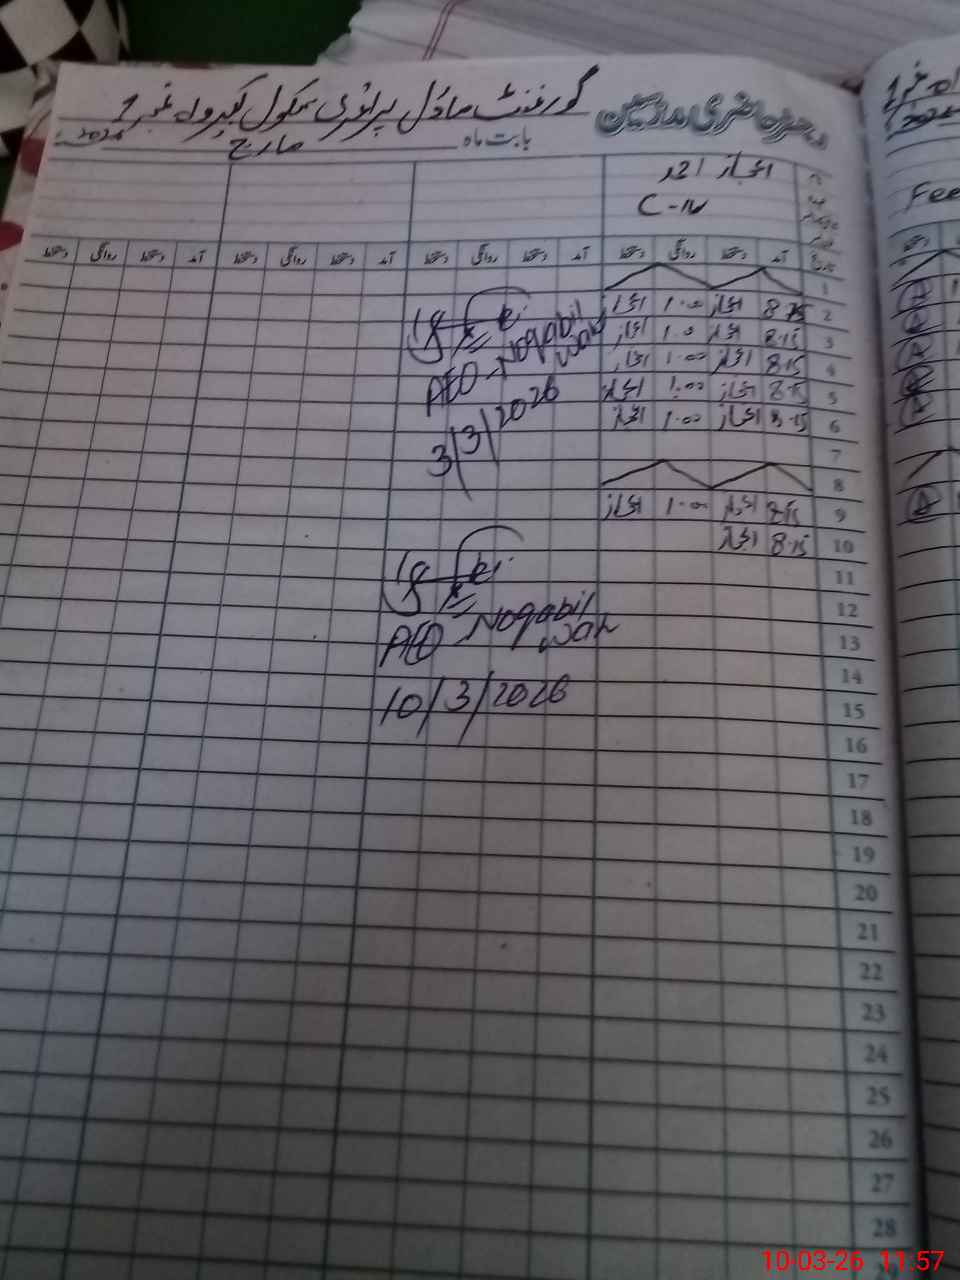 رجسٹر حاضری ملازمین گورنمنٹ ماڈل پرائمری سکول نمبر 1
بابت ماہ مارچ 2026
نام اعجاز احمد
C-IV
تاریخ آمد دستخط روانگی دستخط آمد دستخط روانگی دستخط آمد دستخط روانگی دستخط آمد دستخط روانگی دستخط
1
2 8.15 اعجاز 1.00 اعجاز
3 8.15 اعجاز 1.00 اعجاز
4 8.15 اعجاز 1.00 اعجاز
5 8.15 اعجاز 1.00 اعجاز
6 8.15 اعجاز 1.00 اعجاز
7
8
9 8.15 اعجاز 1.00 اعجاز
10 8.15 اعجاز
AEO - Noqabil
Wah
3/3/2026
11
12
13
14
15
16
17
18
19
20
21
22
23
24
25
26
27
28
AEO Noqabil
Wah
10/3/2026
Fee
10-03-26 11:57